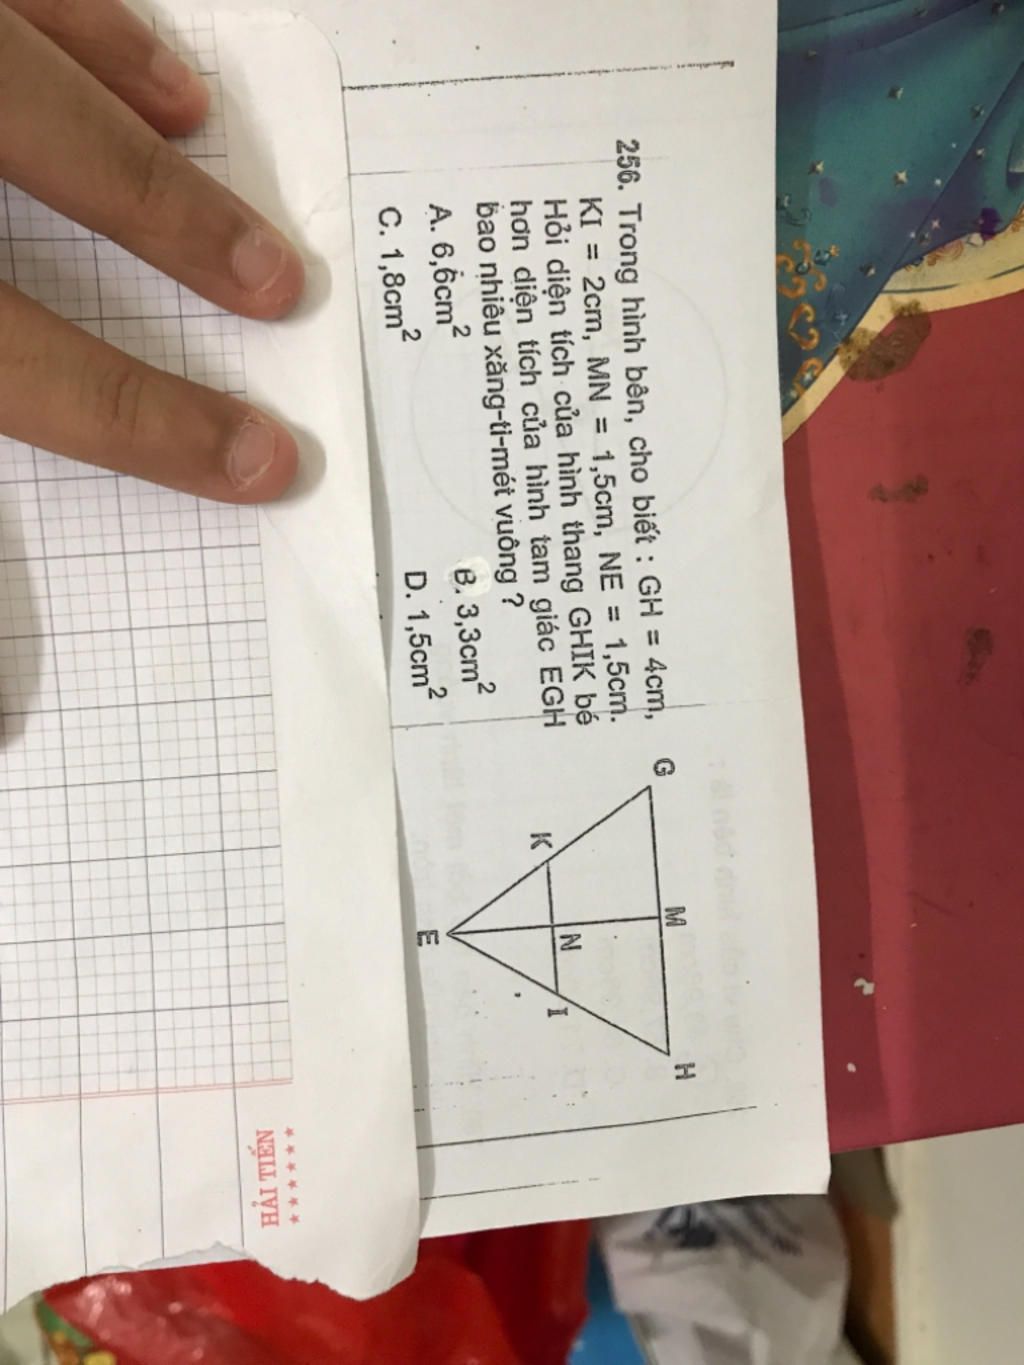 256. Trong hình bên, cho biết : GH = 4cm,
KI = 2cm, MN = 1,5cm, NE = 1,5cm.
Hỏi diện tích của hình thang GHIK bé
hơn diện tích của hình tam giác EGH
bao nhiêu xăng-ti-mét vuông ?
A. 6,6cm²
B. 3,3cm²
C. 1,8cm²
D. 1,5cm²
G
M
H
K
N
I
E
HẢI TIẾN